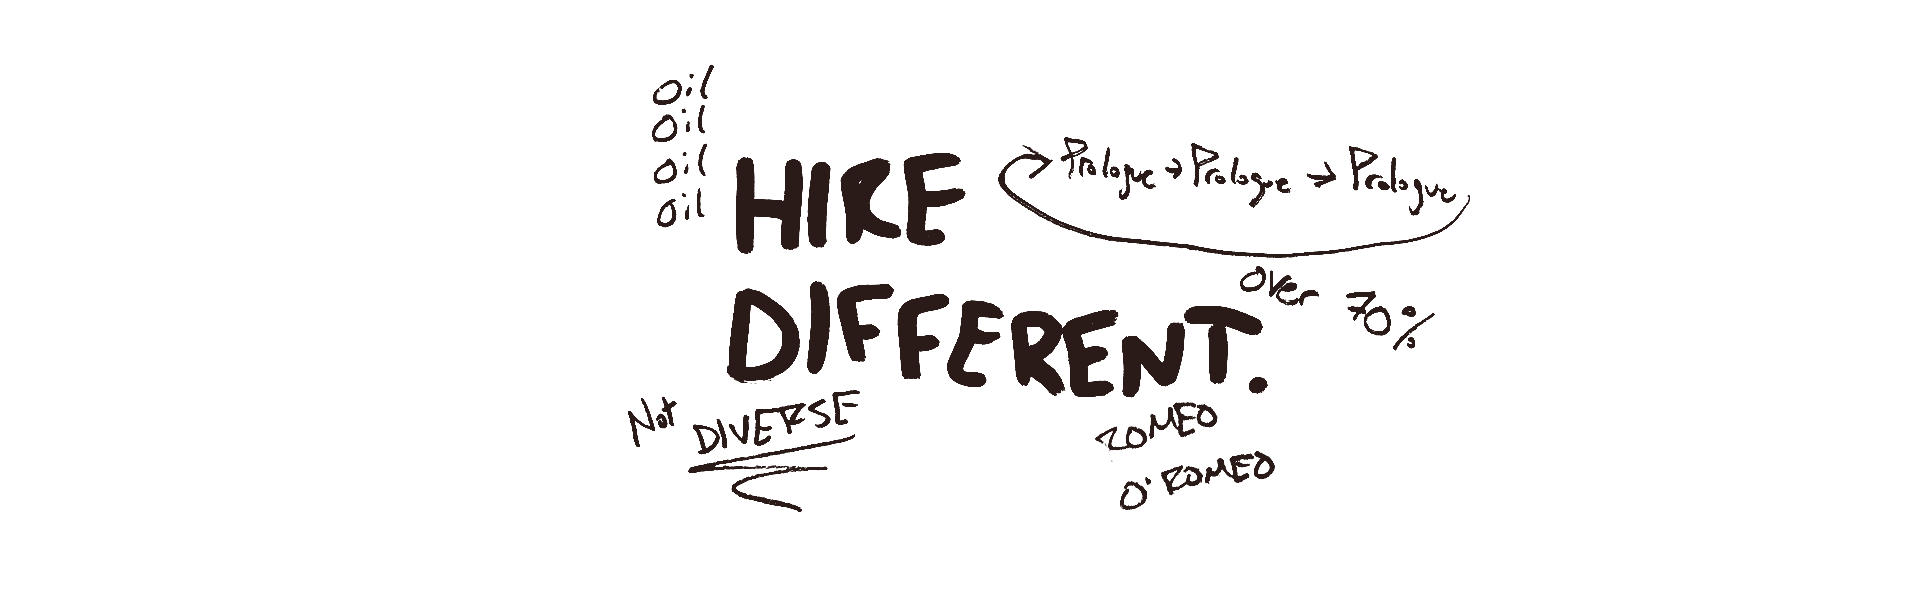 Oil
Oil
Oil
Oil
HIRE
DIFFERENT.
Prologue → Prologue → Prologue
Over 70%
Not DIVERSE
ROMEO
O' ROMEO